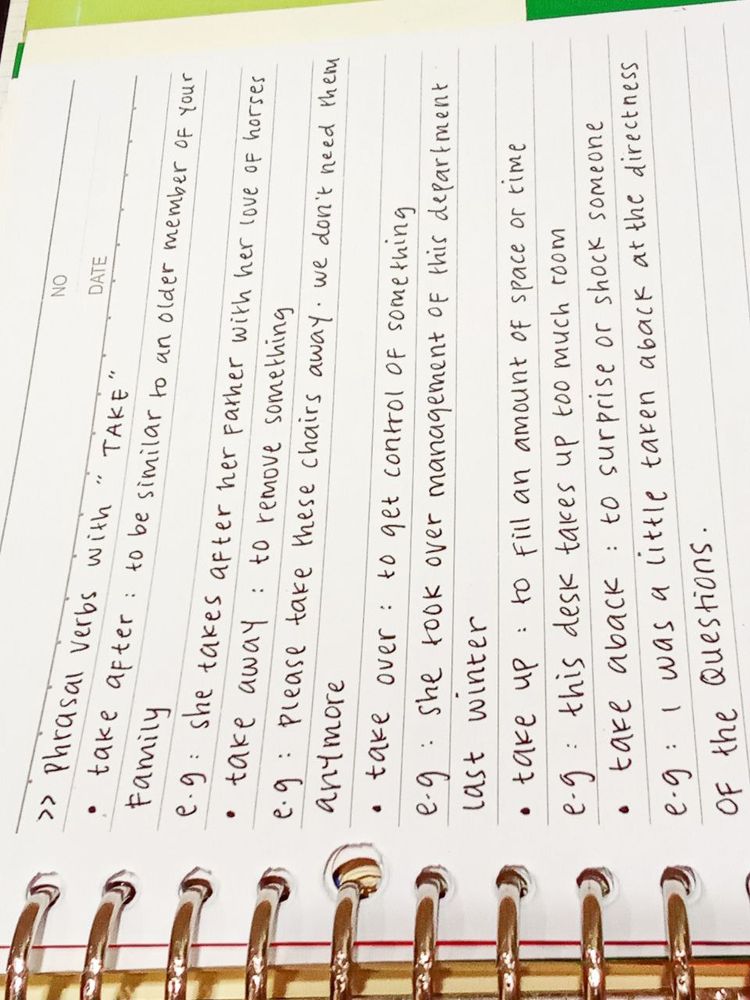 NO
DATE
>> Phrasal Verbs with " TAKE "
• take after : to be similar to an older member of your
family
e.g : she takes after her father with her love of horses
• take away : to remove something
e.g : please take these chairs away. we don't need them
anymore
• take over : to get control of something
e.g : she took over management of this department
last winter
• take up : to fill an amount of space or time
e.g : this desk takes up too much room
• take aback : to surprise or shock someone
e.g : I was a little taken aback at the directness
of the Questions.